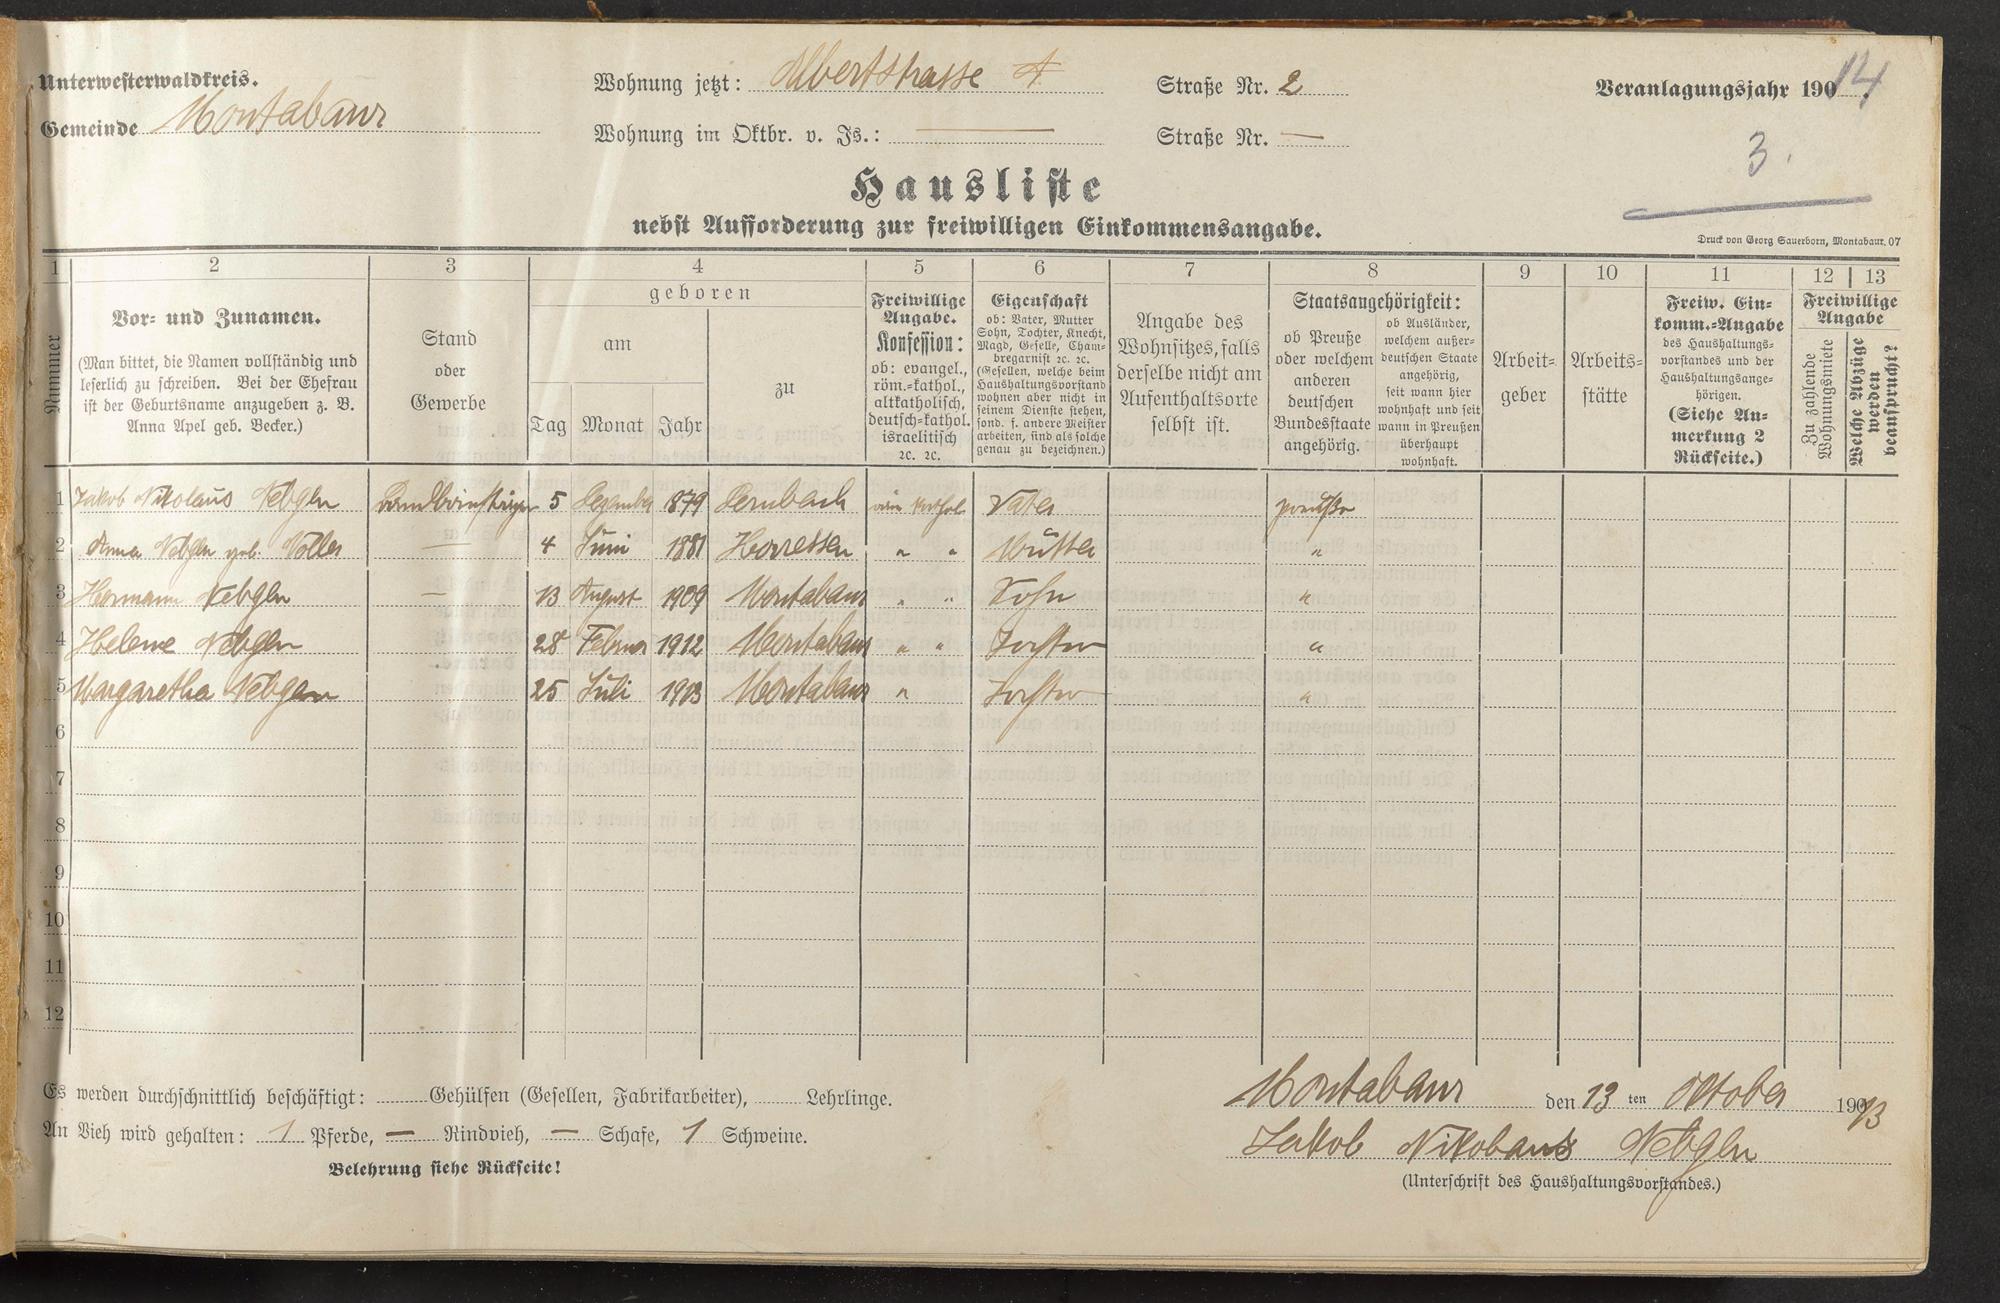 Unterwesterwaldkreis.
Gemeinde Montabaur
Wohnung jetzt: Albertstrasse A Straße Nr. 2
Wohnung im Oktbr. v. Js.: — Straße Nr. —
Veranlagungsjahr 190 14
3.
Hausliste
nebst Aufforderung zur freiwilligen Einkommensangabe.
Druck von Georg Sauerborn, Montabaur. 07
1 2 3 4 5 6 7 8 9 10 11 12 13
Nummer
Vor- und Zunamen.
(Man bittet, die Namen vollständig und
leserlich zu schreiben. Bei der Ehefrau
ist der Geburtsname anzugeben z. B.
Anna Apel geb. Becker.)
Stand
oder
Gewerbe
geboren
am
Tag Monat Jahr
zu
Freiwillige
Angabe.
Konfession:
ob: evangel.,
röm.-kathol.,
altkatholisch,
deutsch-kathol.
israelitisch
2c. 2c.
Eigenschaft
ob: Vater, Mutter
Sohn, Tochter, Knecht,
Magd, Geselle, Cham-
bregarnist 2c. 2c.
(Gesellen, welche beim
Haushaltungsvorstand
wohnen aber nicht in
seinem Dienste stehen,
sond. f. andere Meister
arbeiten, sind als solche
genau zu bezeichnen.)
Angabe des
Wohnsitzes, falls
derselbe nicht am
Aufenthaltsorte
selbst ist.
Staatsangehörigkeit:
ob Preuße
oder welchem
anderen
deutschen
Bundesstaate
angehörig.
ob Ausländer,
welchem außer-
deutschen Staate
angehörig,
seit wann hier
wohnhaft und seit
wann in Preußen
überhaupt
wohnhaft.
Arbeit-
geber
Arbeits-
stätte
Freiw. Ein-
komm.-Angabe
des Haushaltungs-
vorstandes und der
Haushaltungsange-
hörigen.
(Siehe An-
merkung 2
Rückseite.)
Freiwillige
Angabe
Zu zahlende
Wohnungsmiete
Welche Abzüge
werden
beansprucht?
1 Jakob Nikolaus Nebgen 5 Dezember 1879 Dernbach röm kathol Vater preuße
2 Anna Nebgen geb. Noller — 4 Juni 1881 Horressen " " Mutter "
3 Hermann Nebgen — 13 August 1909 Montabaur " " Sohn "
4 Helene Nebgen 28 Februar 1912 Montabaur " " Tochter "
5 Margaretha Nebgen 25 Juli 1913 Montabaur " Tochter "
6
7
8
9
10
11
12
Es werden durchschnittlich beschäftigt: Gehülfen (Gesellen, Fabrikarbeiter), Lehrlinge.
An Vieh wird gehalten: 1 Pferde, — Rindvieh, — Schafe, 1 Schweine.
Belehrung siehe Rückseite!
Montabaur den 13 ten Oktober 190 13
Jakob Nikolaus Nebgen
(Unterschrift des Haushaltungsvorstandes.)